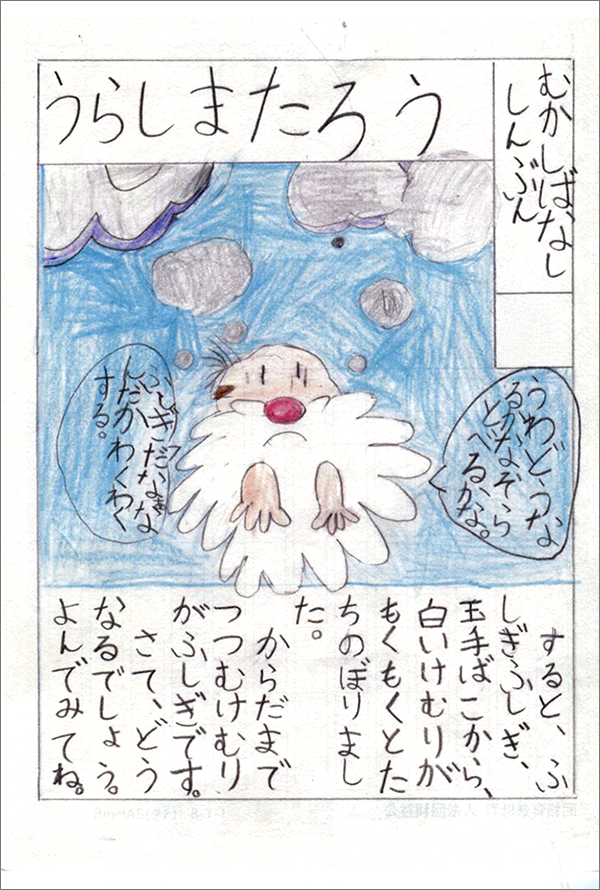 むかしばなし
しんぶん
うらしまたろう
うわ、どうな
るかなぞら
とべるかな。
ふしぎだなあな
んだかわくわく
する。
すると、ふ
しぎふしぎ、
玉手ばこから、
白いけむりが
もくもくとた
ちのぼりまし
た。
からだまで
つつむけむり
がふしぎです。
さて、どう
なるでしょう。
よんでみてね。
公益財団法人 理想教育財団